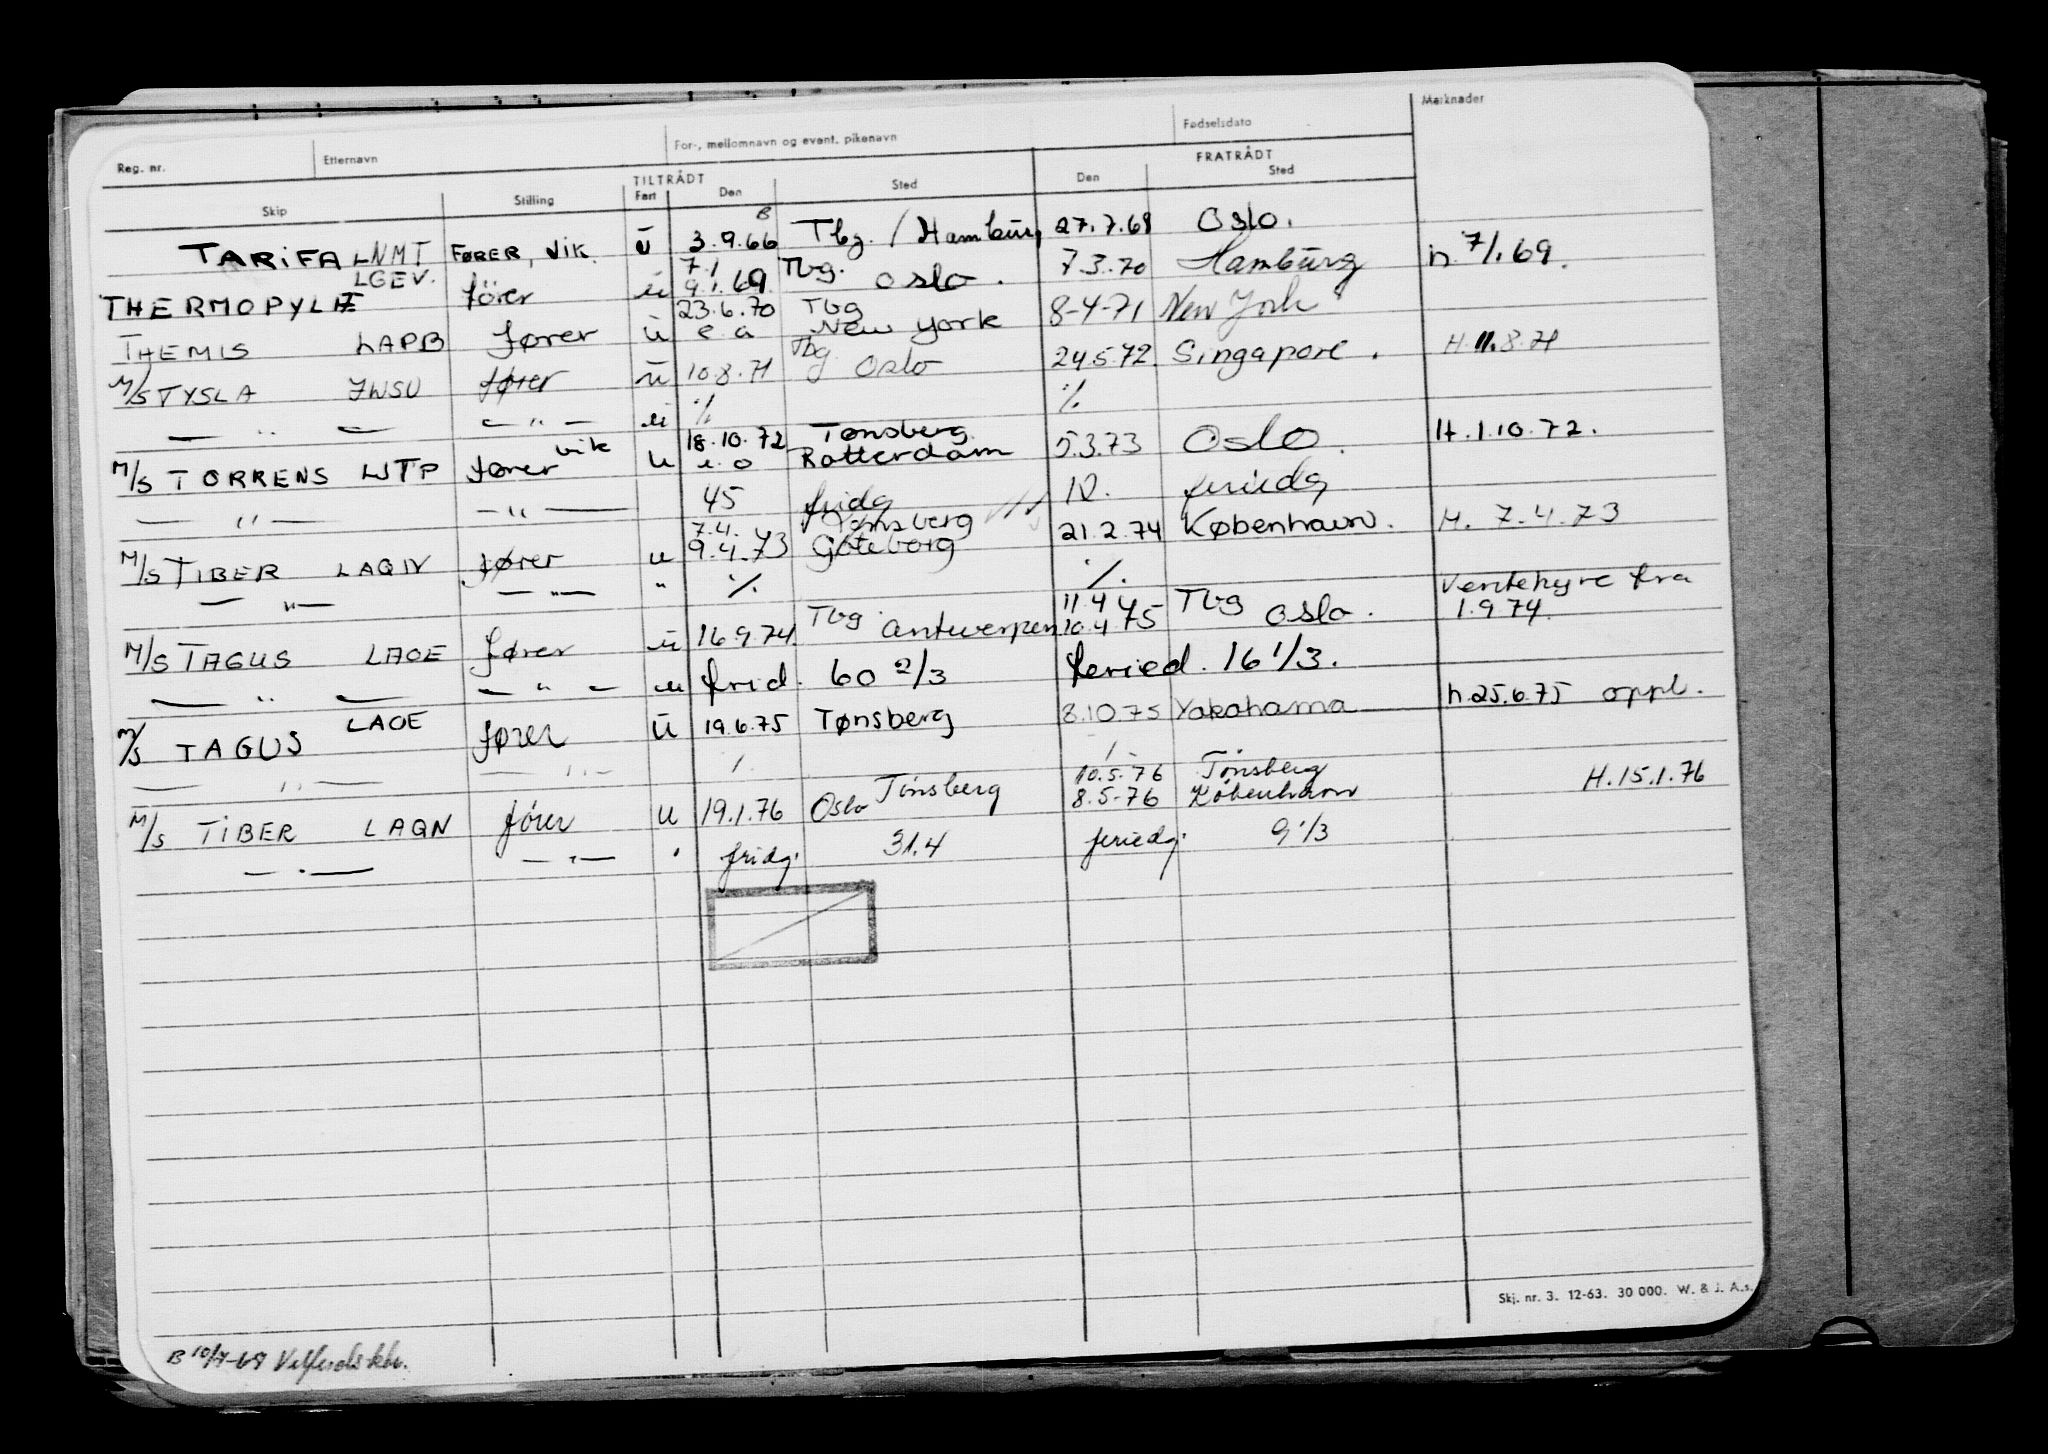 Reg. nr. Etternavn For-, mellomnavn og event. pikenavn Fødselsdato Merknader
TILTRÅDT FRATRÅDT
Skip Stilling Fart Den Sted Den Sted
B
TARIFA LNMT FØRER, VIK. u 3.9.66 Tbg. / Hamburg 27.7.68 Oslo.
THERMOPYLÆ LGEV. fører u 7.1 9.1.69 Tbg. Oslo. 7.3.70 Hamburg h. 7/1.69.
THEMIS LAPB fører u 23.6.70 e.a Tbg New York 8-4-71 New York
M/S TYSLA JWSU fører u 10.8.71 Tbg Oslo 24.5.72. Singapore. H.11.8.71
— " — — " — u % %
M/S TORRENS LJTP fører vik u 18.10.72 e.o Tønsberg Rotterdam 5.3.73 Oslo. H.1.10.72.
— " — — " — 45 fridg 10. feriedg
M/S TIBER LAQN fører u 7.4. 9.4.73 Tønsberg Göteborg 21.2.74 København. H. 7.4.73
— " — — " — " % %.
M/S TAGUS LAOE fører u 16.9.74. Tbg Antwerpen 11.4 10.4.75 Tbg Oslo. Ventehyre fra 1.9.74.
— " — — " — u frid. 60 2/3 feried. 16 1/3.
M/S TAGUS LAOE fører u 19.6.75 Tønsberg 8.10.75 Yokohama h.25.6.75 oppl.
— " — — " — / /
M/S TIBER LAQN fører u 19.1.76 Oslo Tønsberg 10.5.76 8.5-76 Tønsberg København H.15.1.76
— " — — " — " fridg. 31.4 feriedg. 9 1/3
Skj. nr. 3. 12-63. 30 000. W. & J. A.s.
B 10/7-69